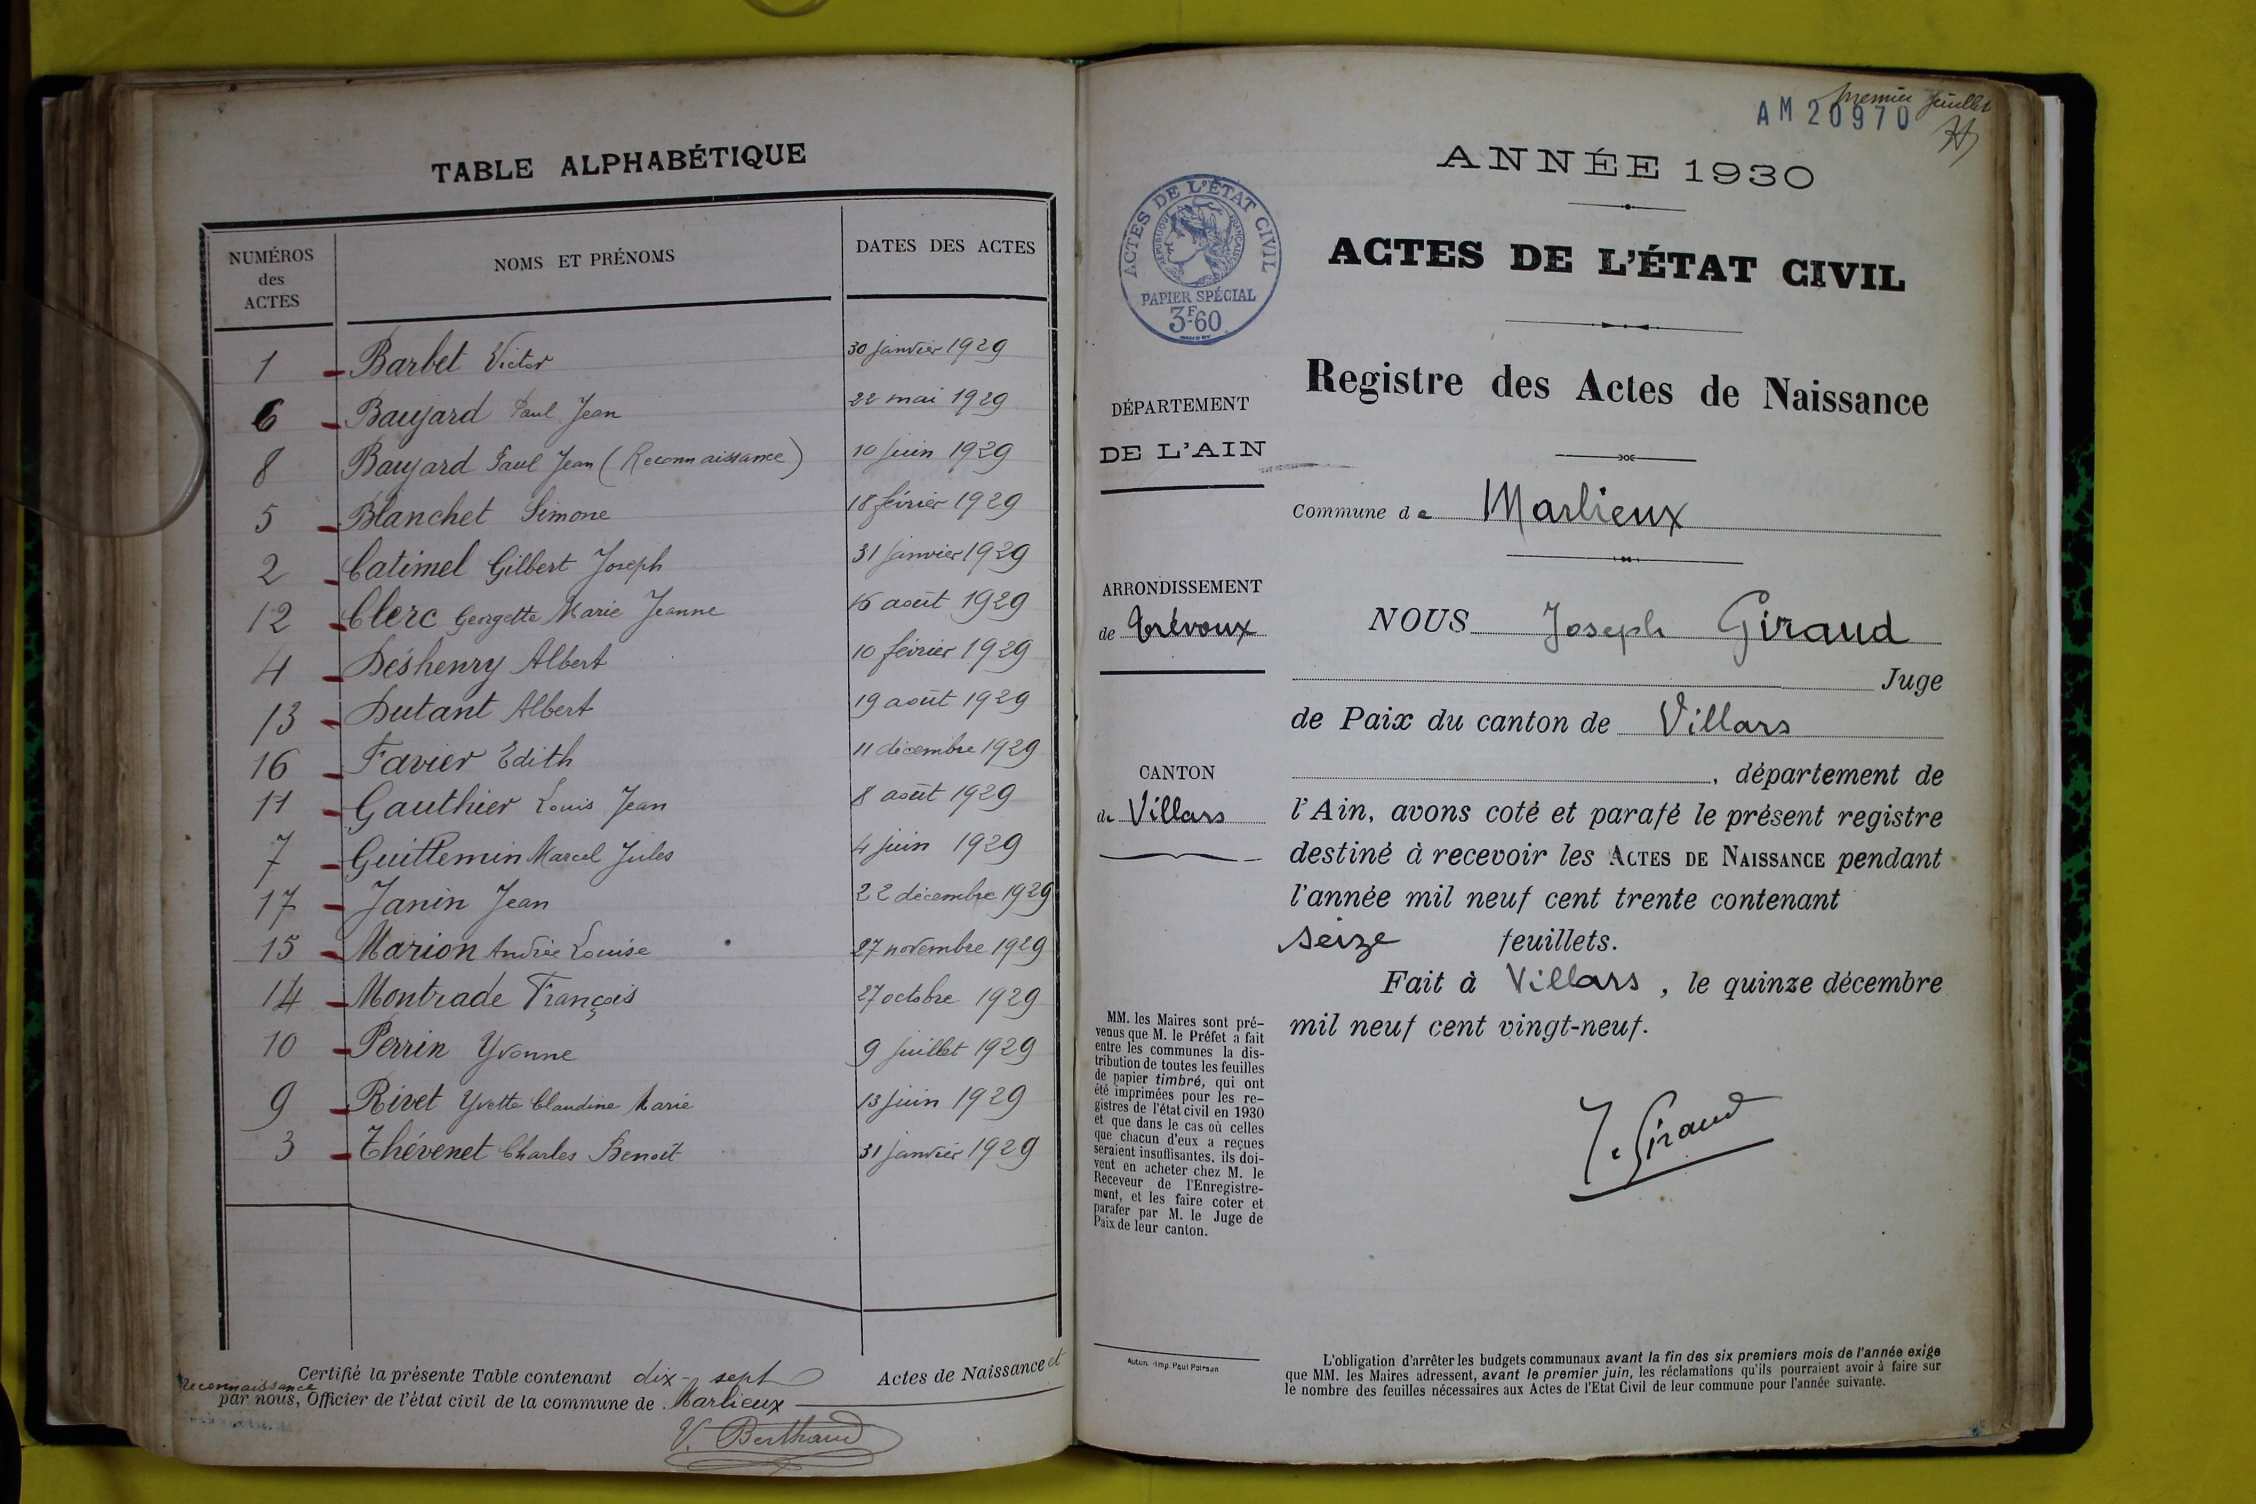 TABLE ALPHABÉTIQUE
NUMÉROS des ACTES
NOMS ET PRÉNOMS
DATES DES ACTES
1 Barbet Victor 30 janvier 1929
6 Baujard Paul Jean 22 mai 1929
8 Baujard Paul Jean (Reconnaissance) 10 juin 1929
5 Blanchet Simone 18 février 1929
2 Catimel Gilbert Joseph 31 janvier 1929
12 Clerc Georgette Marie Jeanne 16 août 1929
4 Déshenry Albert 10 février 1929
13 Dutant Albert 19 août 1929
16 Favier Edith 11 décembre 1929
11 Gauthier Louis Jean 8 août 1929
7 Guillemin Marcel Jules 4 juin 1929
17 Janin Jean 22 décembre 1929
15 Marion Andrée Louise 27 novembre 1929
14 Montrade François 27 octobre 1929
10 Perrin Yvonne 9 juillet 1929
9 Rivet Yvette Claudine Marie 13 juin 1929
3 Thévenet Charles Benoît 31 janvier 1929
Certifié la présente Table contenant dix-sept Actes de Naissance et
reconnaissance
par nous, Officier de l'état civil de la commune de Marlieux
V. Berthaud
premier feuillet
AM 20970
ANNÉE 1930
ACTES DE L'ÉTAT CIVIL
RÉPUBLIQUE FRANÇAISE
PAPIER SPÉCIAL
3F60
ACTES DE L'ÉTAT CIVIL
Registre des Actes de Naissance
DÉPARTEMENT
DE L'AIN
Commune de Marlieux
ARRONDISSEMENT
de Trévoux
CANTON
de Villars
NOUS Joseph Giraud
Juge
de Paix du canton de Villars
, département de
l'Ain, avons coté et parafé le présent registre
destiné à recevoir les ACTES DE NAISSANCE pendant
l'année mil neuf cent trente contenant
seize feuillets.
Fait à Villars, le quinze décembre
mil neuf cent vingt-neuf.
J. Giraud
MM. les Maires sont pré-
venus que M. le Préfet a fait
entre les communes la dis-
tribution de toutes les feuilles
de papier timbré, qui ont
été imprimées pour les re-
gistres de l'état civil en 1930
et que dans le cas où celles
que chacun d'eux a reçues
seraient insuffisantes. ils doi-
vent en acheter chez M. le
Receveur de l'Enregistre-
ment, et les faire coter et
parafer par M. le Juge de
Paix de leur canton.
Autun. -Imp. Paul Poirson
L'obligation d'arrêter les budgets communaux avant la fin des six premiers mois de l'année exige
que MM. les Maires adressent, avant le premier juin, les réclamations qu'ils pourraient avoir à faire sur
le nombre des feuilles nécessaires aux Actes de l'Etat Civil de leur commune pour l'année suivante.